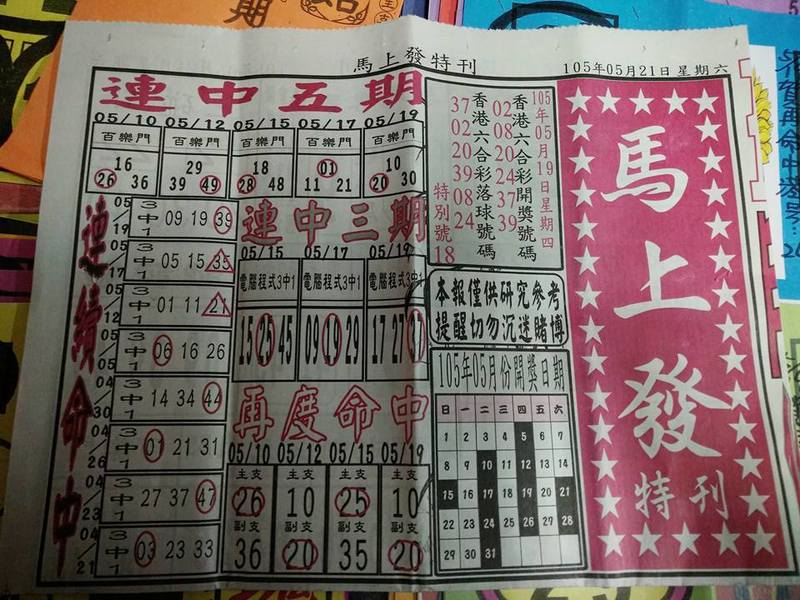 馬上發特刊
105年05月21日星期六
連中五期
05/10 05/12 05/15 05/17 05/19
百樂門 百樂門 百樂門 百樂門 百樂門
16 29 18 01 10
26 36 39 49 28 48 11 21 20 30
連續命中
05/19 3中1 09 19 39
05/17 3中1 05 15 35
3中1 01 11 21
3中1 06 16 26
05/05
04/30 3中1 14 34 44
04/26 3中1 01 21 31
04/23 3中1 27 37 47
04/21 3中1 03 23 33
連中三期
05/15 05/17 05/19
電腦程式3中1 電腦程式3中1 電腦程式3中1
15 25 45 09 19 29 17 27 37
再度命中
05/10 05/12 05/15 05/19
主支 主支 主支 主支
26 10 25 10
副支 副支 副支 副支
36 20 35 20
105年05月19日星期四
香港六合彩開獎號碼
02 08 20 24 37 39
香港六合彩落球號碼
37 02 20 39 08 24
特別號 18
本報僅供研究參考
提醒切勿沉迷賭博
105年05月份開獎日期
日 一 二 三 四 五 六
1 2 3 4 5 6 7
8 9 10 11 12 13 14
15 16 17 18 19 20 21
22 23 24 25 26 27 28
29 30 31
馬上發
特刊
期